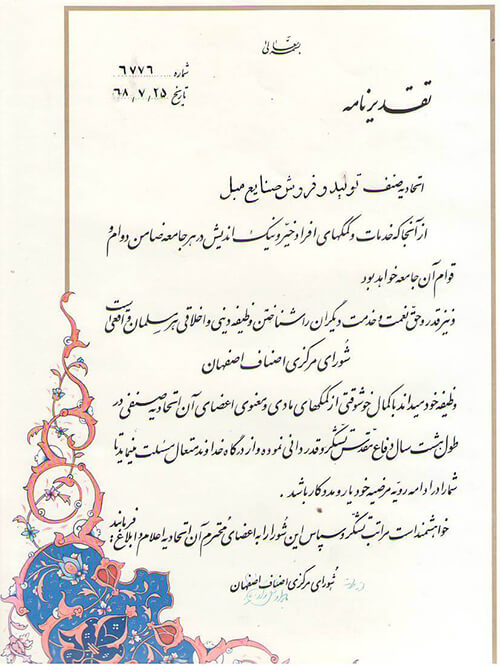 بسمه تعالی
شماره ۶۷۷۶
تاریخ ۶۸٫۷٫۲۵
تقدیرنامه
اتحادیه صنف تولید و فروش صنایع مبل
از آنجا که خدمات و کمکهای افراد خیّر و نیک اندیش در هر جامعه ضامن دوام و
قوام آن جامعه خواهد بود
و نیز قدر و حقّ نعمت و خدمت دیگران را شناختن وظیفه دینی و اخلاقی هر مسلمان واقعی است
شورای مرکزی اصناف اصفهان
وظیفه خود میداند با کمال خوشوقتی از کمکهای مادی و معنوی اعضای آن اتحادیه صنفی در
طول هشت سال دفاع مقدّس تشکّر و قدردانی نموده و از درگاه خداوند متعال مسئلت مینماید تا
شما را در ادامه رویّه مرضیه خود یار و مددکار باشد .
خواهشمند است مراتب تشکّر و سپاس این شورا را به اعضای محترم آن اتحادیه اعلام و ابلاغ فرمایند :
شورای مرکزی اصناف اصفهان